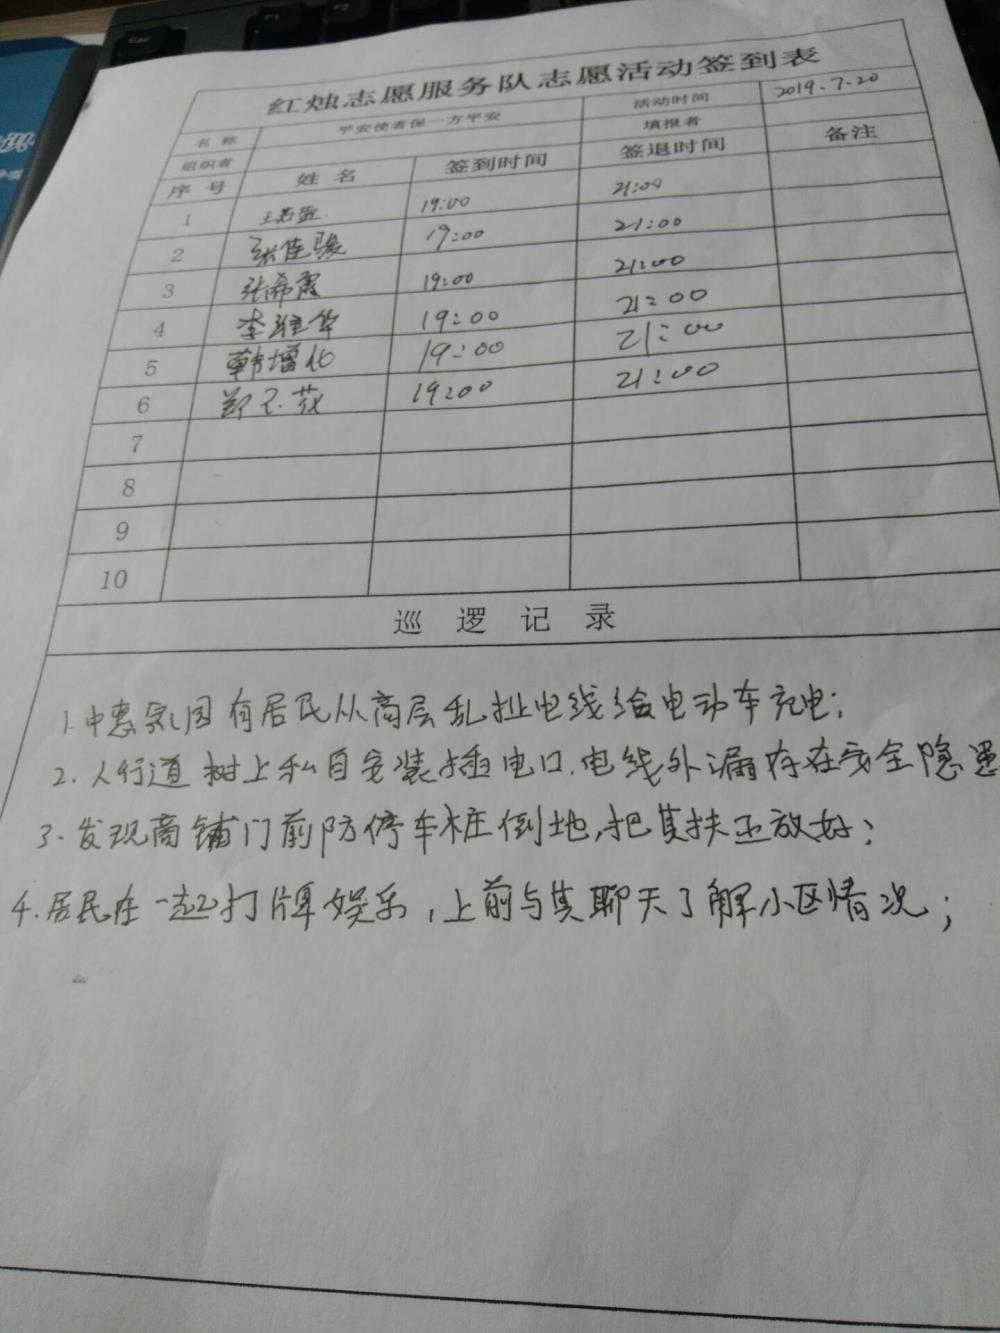 红烛志愿服务队志愿活动签到表
名 称 平安使者保一方平安 活动时间 2019.7.20
组织者 填报者
序 号 姓 名 签到时间 签退时间 备注
1 19:00 21:00
2 张佳骏 19:00 21:00
3 张希霞 19:00 21:00
4 李维华 19:00 21:00
5 韩增化 19:00 21:00
6 郑 19:00 21:00
7
8
9
10
巡 逻 记 录
1.中惠 有居民从高层乱扯电线给电动车充电;
2.人行道树上私自安装插电口.电线外漏存在安全隐患
3.发现商铺门前防停车桩倒地,把其扶正放好;
4.居民在一起打牌娱乐,上前与其聊天了解小区情况;
Esc
F1
F2